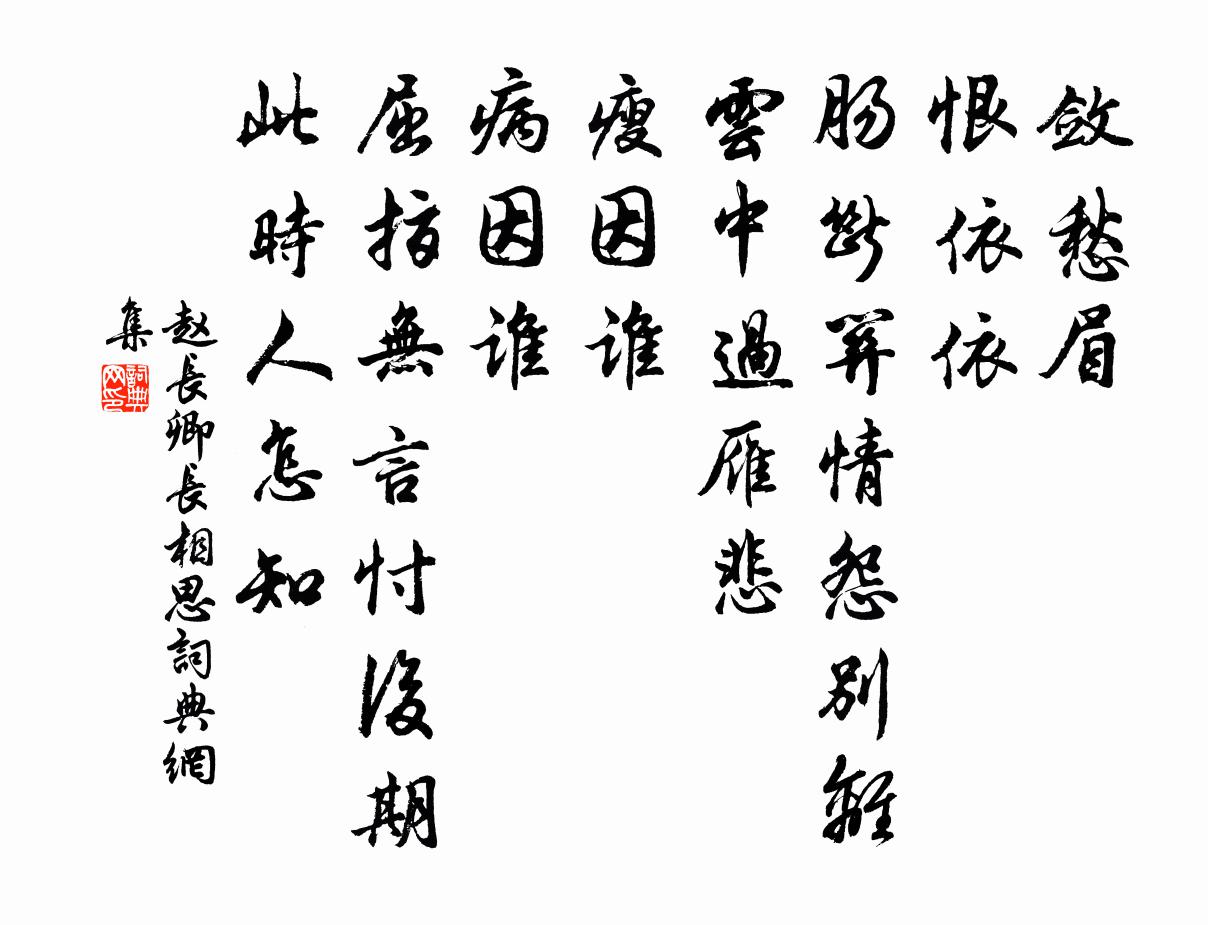 敛愁眉
恨依依
肠斷關情怨別離
雲中過雁悲
瘦因誰
病因誰
屈指無言忖後期
此時人怎知
赵長卿長相思詞典網
集
詞典网印